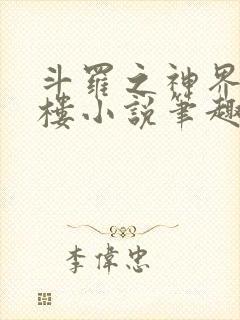 斗羅之神界
樓小說筆趣
李偉忠